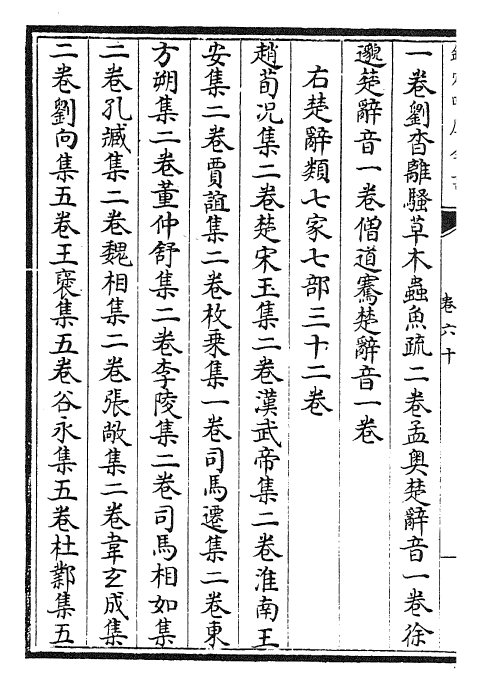 一卷劉杳離騷草木蟲魚疏二卷孟奧楚辭音一卷徐
邈楚辭音一卷僧道騫楚辭音一卷
右楚辭類七家七部三十二卷
趙荀况集二卷楚宋玉集二卷漢武帝集二卷淮南王
安集二卷賈誼集二卷枚乗集一卷司馬遷集二卷東
方朔集二卷董仲舒集二卷李陵集二卷司馬相如集
二卷孔臧集二卷魏相集二卷張敞集二卷韋玄成集
二卷劉向集五卷王襃集五卷谷永集五卷杜鄴集五
卷六十
一